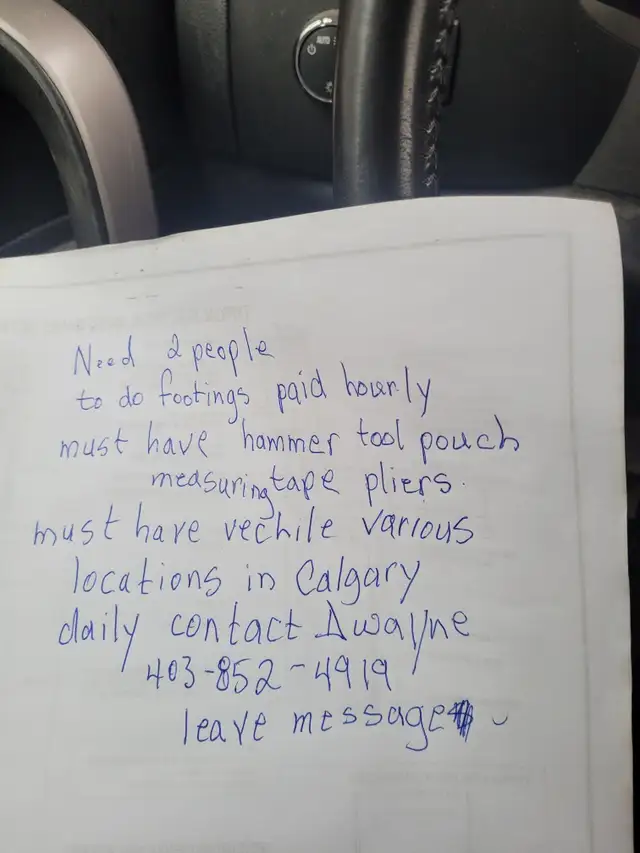 AUTO
Need 2 people
to do footings paid hourly
must have hammer tool pouch
measuring tape pliers.
must have vechile various
locations in Calgary
daily contact Dwayne
403-852-4919
leave message